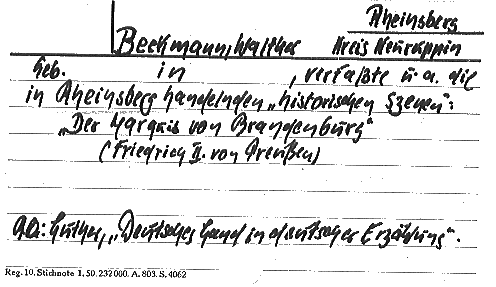 Rheinsberg
Beckmann, Walther Kreis Neuruppin
Geb. in , verfaßte u. a. die
in Rheinsberg handelnden „historischen Szenen":
„Der Marquis von Brandenburg"
(Friedrich II. von Preußen)
a.a.: Luther, „Deutsches Land in deutscher Erzählung".
Reg. 10. Stichnote 1, 50. 237000. A. 803. S. 4062